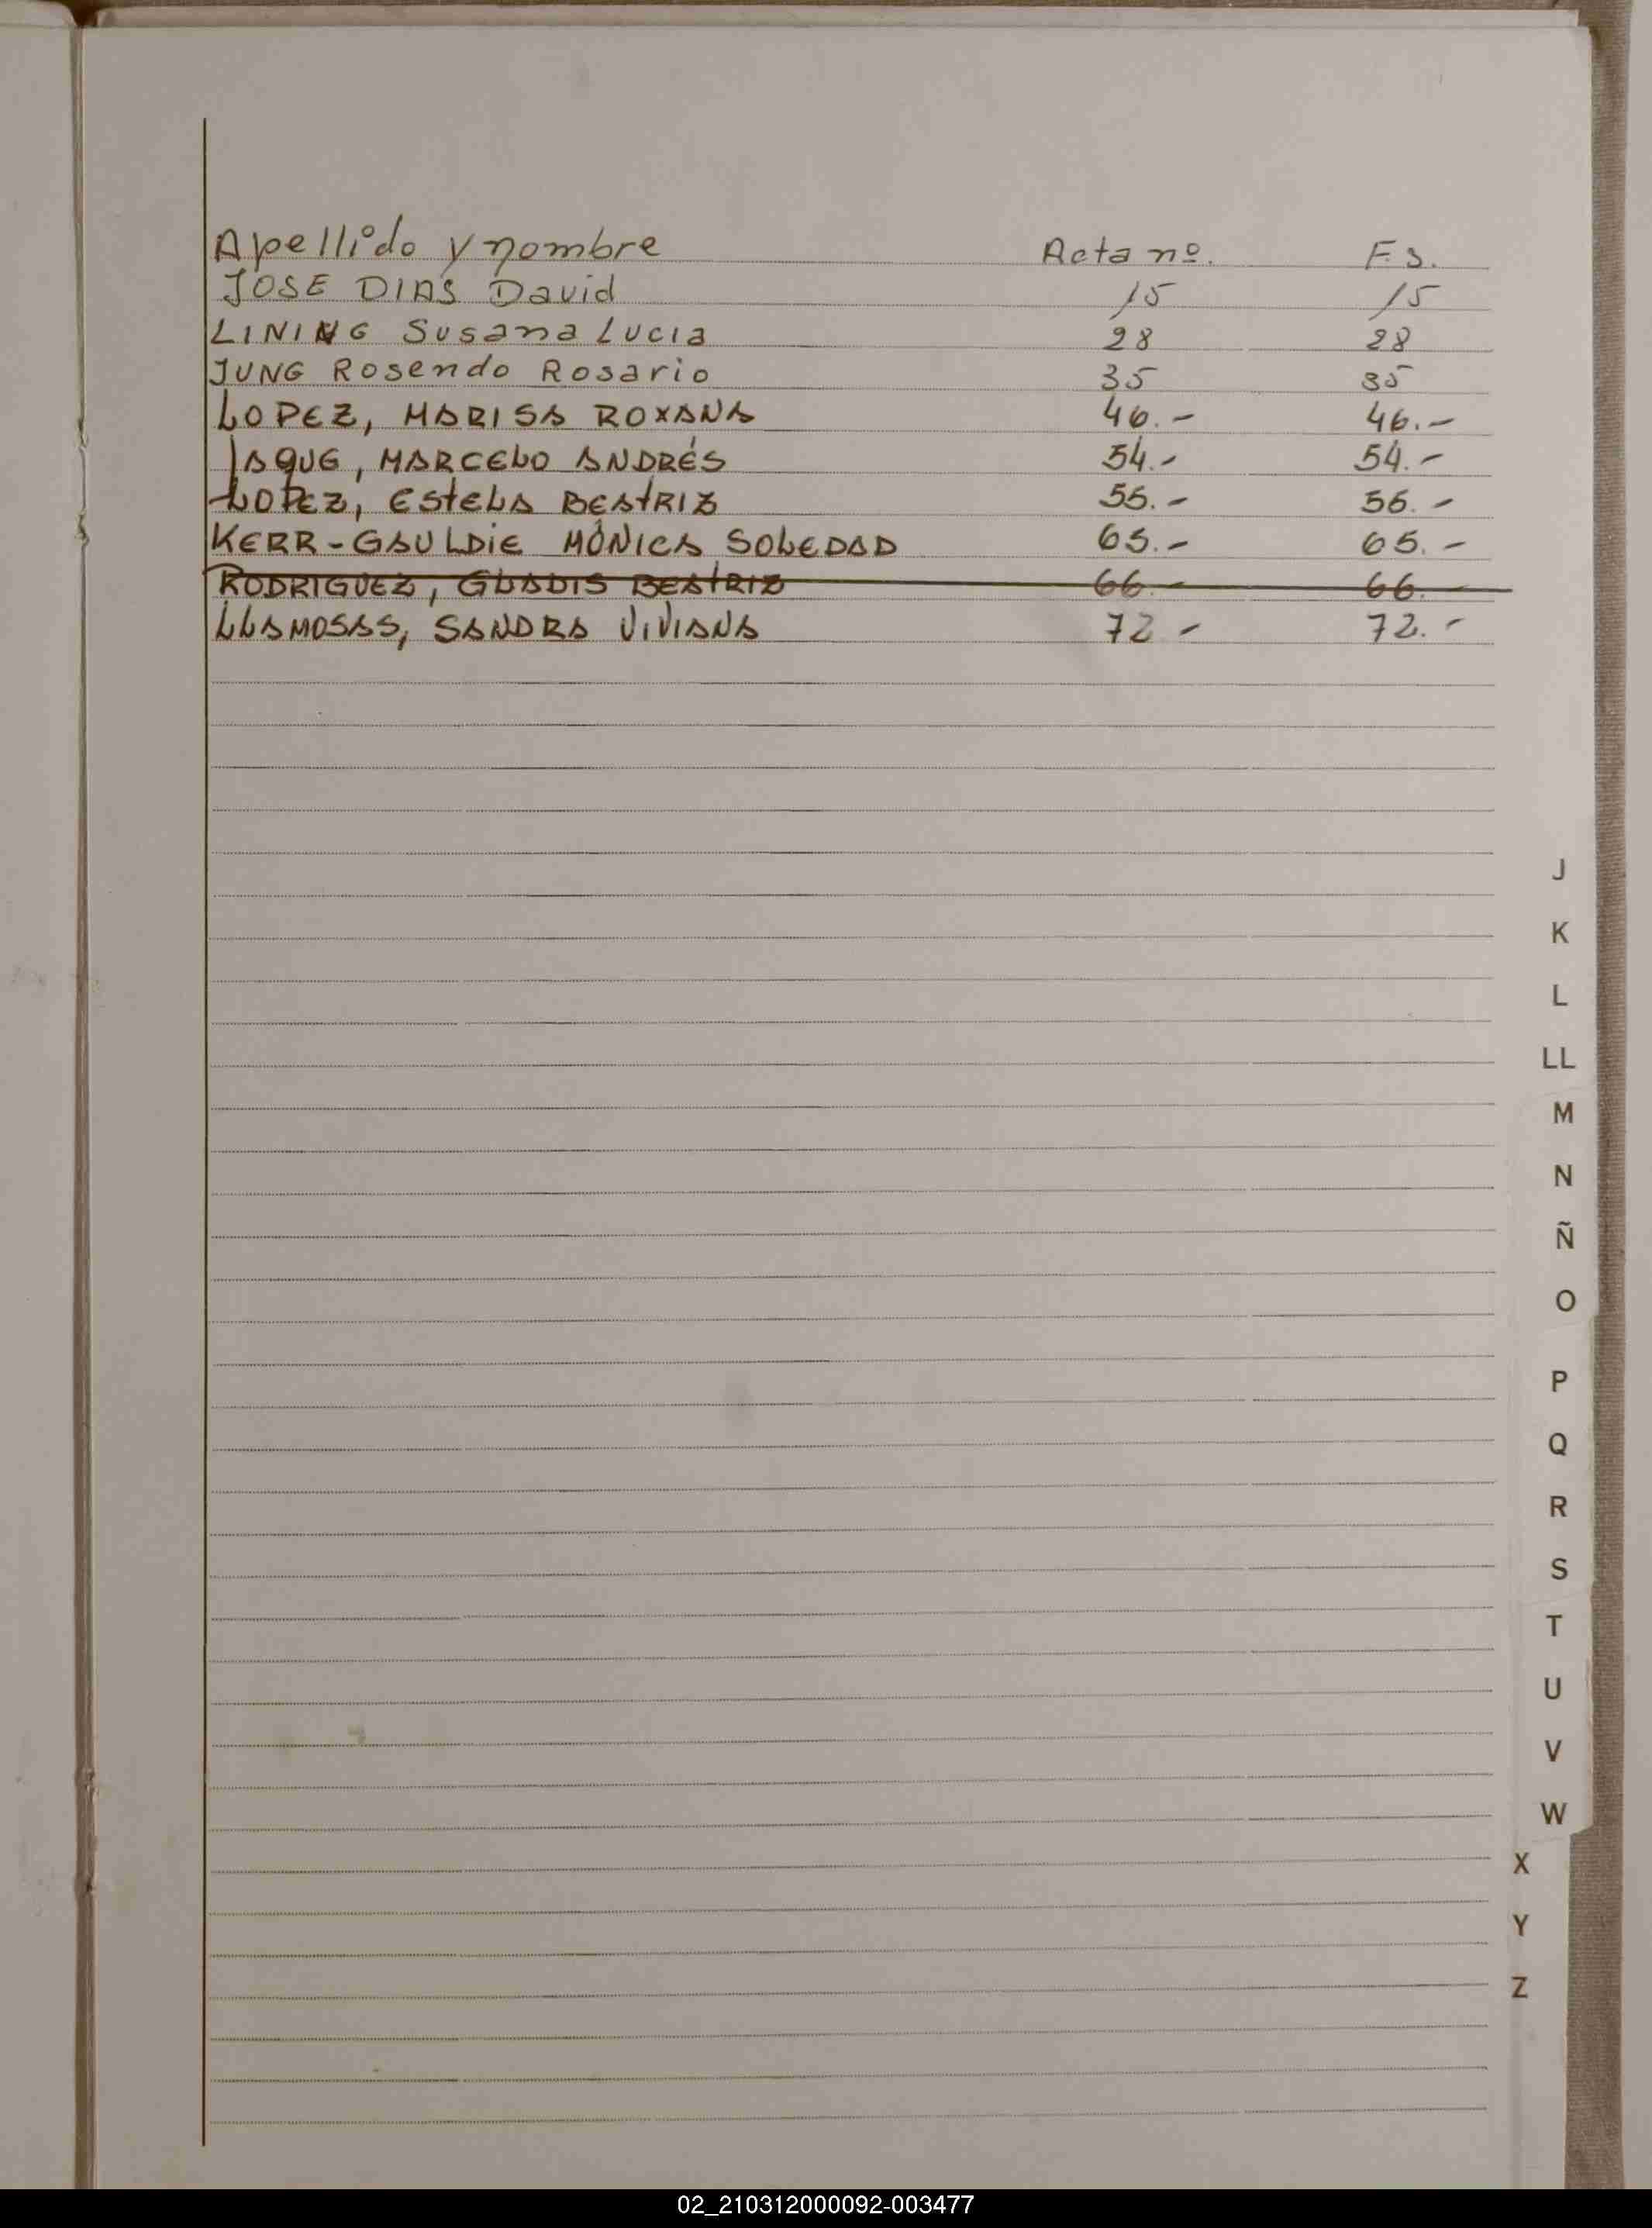 Apellido y nombre Acta nº. Fs.
JOSE DIAS David 15 15
LINING Susana Lucia 28 28
JUNG Rosendo Rosario 35 35
LOPEZ, MARISA ROXANA 46.- 46.-
JAQUE, MARCELO ANDRÉS 54.- 54.-
LOPEZ, ESTELA BEATRIZ 55.- 56.-
KERR-GAULDIE MÓNICA SOLEDAD 65.- 65.-
RODRIGUEZ, GLADIS BEATRIZ 66.- 66.-
LLAMOSAS, SANDRA VIVIANA 72.- 72.-
J
K
L
LL
M
N
Ñ
O
P
Q
R
S
T
U
V
W
X
Y
Z
02_210312000092-003477